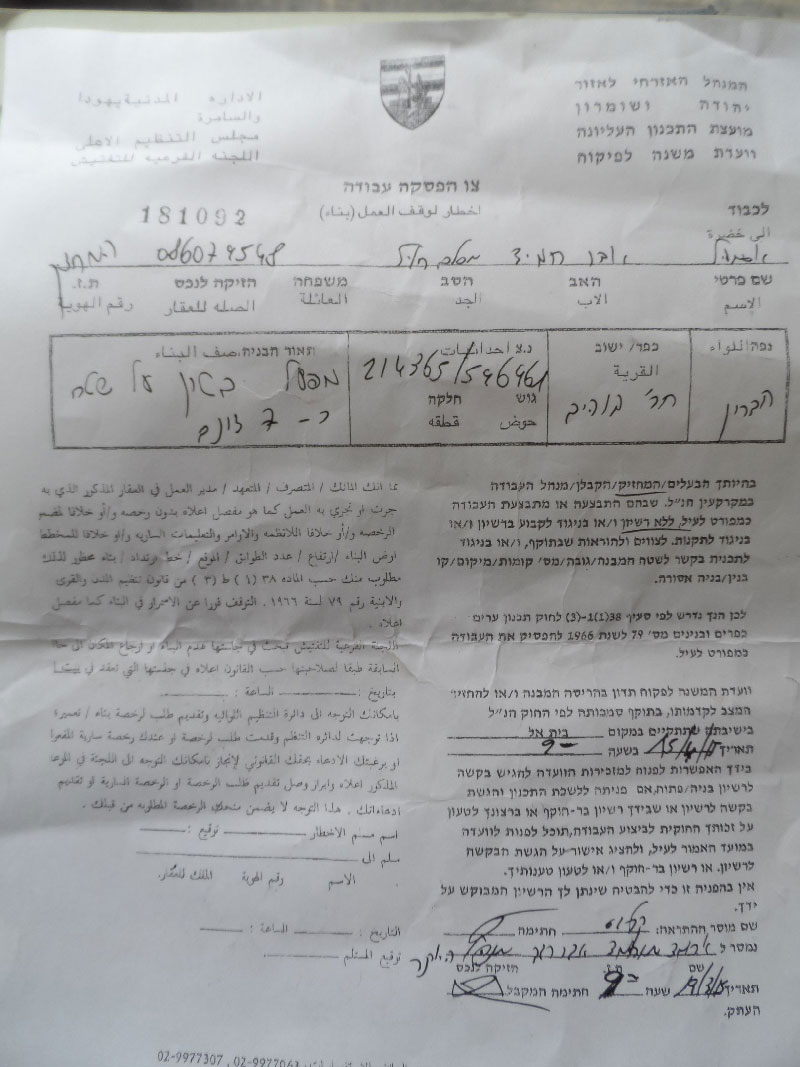 המנהל האזרחי לאזור
יהודה ושומרון
מועצת התכנון העליונה
וועדת משנה לפיקוח
الاداره المدنية يهودا
والسامرة
مجلس التنظيم الاعلى
اللجنه الفرعيه للتفتيش
צו הפסקה עבודה
اخطار لوقف العمل (بناء)
181092
לכבוד
الى حضيرة
086079548
שם פרטי האב הסב משפחה הזיקה לנכס ת.ז.
الإسم الاب الجد العائلة الصله للعقار رقم الهوية
נפה اللواء
כפר/ ישוב
القرية
נ.צ احداثيات
גוש חלקה
حوض قطعه
תאור הבניה. صف البناء
חברון
214365/596961
מפעל באון על שטח
כ- 7 דונם
בהיותך הבעלים/המחזיק/הקבלן/מנהל העבודה
במקרקעין הנ"ל. שבהם התבצעה או מתבצעת העבודה
כמפורט לעיל, ללא רשיון ו/או בניגוד לקבוע ברשיון ו/או
בניגוד לתקנות. לצווים ולהוראות שבתוקף, ו/או בניגוד
לתכנית בקשר לשטח המבנה/גובה/מס' קומות/מיקום/קו
בנין/בניה אסורה.
לכן הנך נדרש לפי סעיף 38(1)-(3) לחוק תכנון ערים
כפרים ובנינים מס' 79 לשנת 1966 להפסיק את העבודה
כמפורט לעיל.
וועדת המשנה לפקוח תדון בהריסת המבנה ו/או להחזיר
המצב לקדמותו, בתוקף סמכותה לפי החוק הנ"ל
בישיבתה שתתקיים במקום בית אל
תאריך בשעה 9-
בידך האפשרות לפנות למזכירות הוועדה להגיש בקשה
לרשיון בניה/פתוח, אם פניתה ללשכת התכנון והגשת
בקשה לרשיון או שבידך רשיון בר-חוקף או ברצונך לטעון
על זכותך החוקית לביצוע העבודה, תוכל לפנות לוועדה
במועד האמור לעיל, ולהציג אישור על הגשת הבקשה
לרשיון. או רשיון בר-חוקף ו/או לטעון טענותיך.
אין בהפניה זו כדי להבטיח שינתן לך הרשיון המבוקש על
ידך.
שם מוסר ההתראה: חתימה
נמסר ל
שם ת.ז. הזיקה לנכס
תאריך 19/3/15 שעה חתימה המקבל
העתק.
بما انك المالك / المتصرف / المتعهد / مدير العمل في العقار المذكور الذي به
جرت او تجري به العمل كما هو مفصل اعلاه بدون رخصه و/او خلافا لقسم
الرخصه و/أو خلافا للانظمه والاوامر والتعليمات الساريه و/او خلافا للمخطط
اوض البناء /ارتفاع / عدد الطوابق / الموقع / خط ارتداد / بناء محظور لذلك
مطلوب منك حسب الماده ٣٨ (١) ط (٣) من قانون تنظيم المدن والقرى
والابنية رقم ٧٩ لسنة ١٩٦٦ . التوقف فورا عن الاستمرار في البناء كما مفصل
اعلاه .
اللجنة الفرعية للتفتيش تبحث في جلستها هدم البناء او ارجاع المكان الى حاله
السابقة طبقا لصلاحيتها حسب القانون اعلاه في جلستها التي تعقد في
بتاريخ : الساعة :
بامكانك التوجه الى دائرة التنظيم اللوائيه وتقديم طلب لرخصة بناء / تعميرة
اذا توجهت لدائره التنظيم وقدمت طلب لرخصة او عندك رخصة سارية المفعول
او برغبتك الادعاء بحقك القانوني لإنجاز بامكانك التوجه الى اللجنة في الموعد
المذكور اعلاه وابراز وصل تقديم طلب الرخصة او الرخصة السارية او تقديم
ادعاءاتك . هذا التوجه لا يضمن منحك الرخصة المطلوبه من قبلك .
اسم مسلم الاخطار توقيع :
سلم الى
الاسم رقم الهوية الملك للعقار.
التاريخ : الساعة :
توقيع المستلم
02-9977307, 02-9977063